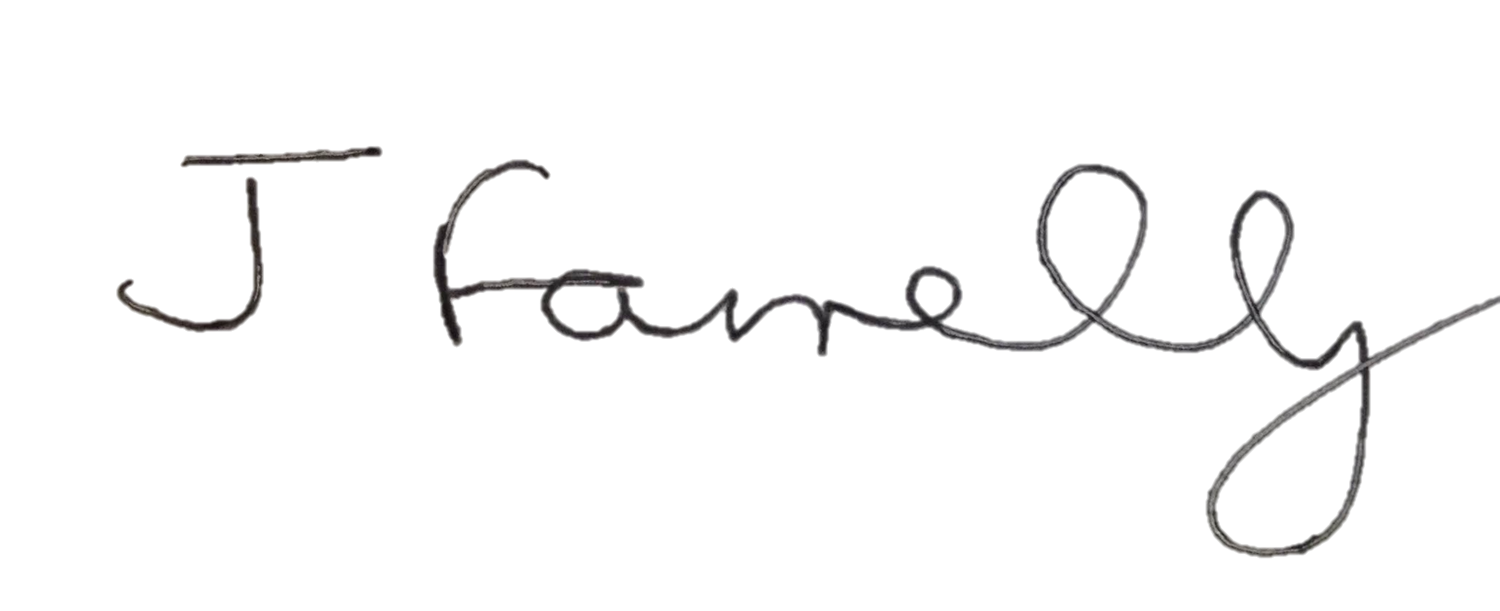 J Farrelly